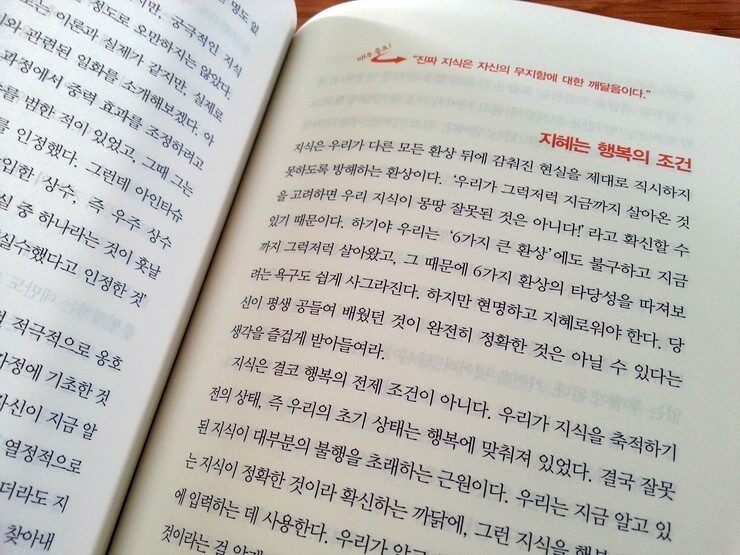 명도 없
지만. 궁극적인 지식
정도로 오만하지는 않았다.
는 이론과 실제가 같지만, 실제로
와 관련된 일화를 소개해보겠다. 아
과정에서 중력 효과를 조정하려고
를 범한 적이 있었고, 그때 그는
를 인정했다. 그런데 아인슈
입한 상수, 즉 우주 상수
실 중 하나라는 것이 훗날
실수했다고 인정한 것
적극적으로 옹호
가정에 기초한 것
자신이 지금 알
열정적으로
더라도 지
찾아내
"진짜 지식은 자신의 무지함에 대한 깨달음이다."
지혜는 행복의 조건
지식은 우리가 다른 모든 환상 뒤에 감춰진 현실을 제대로 직시하지
못하도록 방해하는 환상이다. '우리가 그럭저럭 지금까지 살아온 것
을 고려하면 우리 지식이 몽땅 잘못된 것은 아니다!' 라고 확신할 수
있기 때문이다. 하기야 우리는 '6가지 큰 환상'에도 불구하고 지금
까지 그럭저럭 살아왔고, 그 때문에 6가지 환상의 타당성을 따져보
려는 욕구도 쉽게 사그라진다. 하지만 현명하고 지혜로워야 한다. 당
신이 평생 공들여 배웠던 것이 완전히 정확한 것은 아닐 수 있다는
생각을 즐겁게 받아들여라.
지식은 결코 행복의 전제 조건이 아니다. 우리가 지식을 축적하기
전의 상태, 즉 우리의 초기 상태는 행복에 맞춰져 있었다. 결국 잘못
된 지식이 대부분의 불행을 초래하는 근원이다. 우리는 지금 알고 있
는 지식이 정확한 것이라 확신하는 까닭에, 그런 지식을 행복
에 입력하는 데 사용한다. 우리가 알고
것이라는 걸